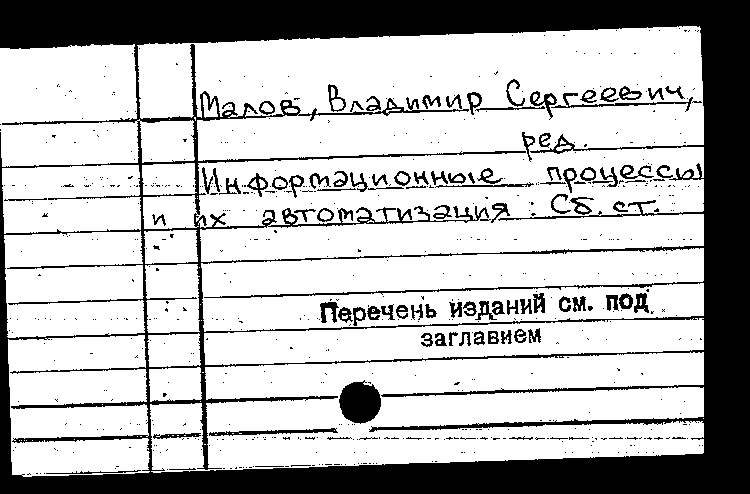 Малов, Владимир Сергеевич,
ред.
Информационные процессы
и их автоматизация : Сб. ст.
Перечень изданий см. под
заглавием